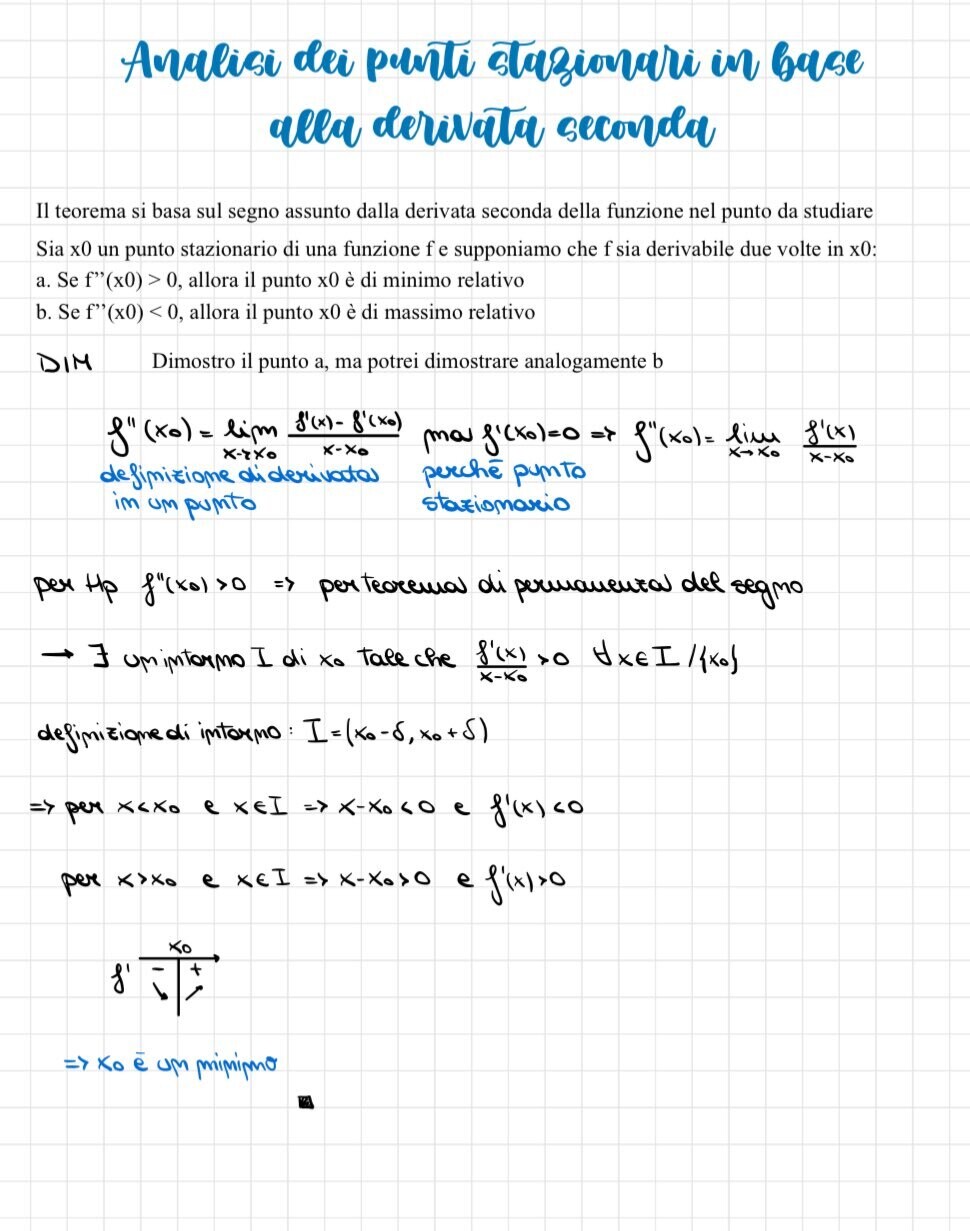 Analisi dei punti stazionari in base
alla derivata seconda
Il teorema si basa sul segno assunto dalla derivata seconda della funzione nel punto da studiare
Sia x0 un punto stazionario di una funzione f e supponiamo che f sia derivabile due volte in x0:
a. Se f’’(x0) > 0, allora il punto x0 è di minimo relativo
b. Se f’’(x0) < 0, allora il punto x0 è di massimo relativo
DIM Dimostro il punto a, ma potrei dimostrare analogamente b
f"(x₀) = lim x→x₀ f'(x) - f'(x₀) / x - x₀ ma f'(x₀)=0 => f"(x₀) = lim x→x₀ f'(x) / x - x₀
definizione di derivata perchè punto
in un punto stazionario
per Hp f"(x₀) > 0 => per teorema di permanenza del segno
→ ∃ un intorno I di x₀ tale che f'(x) / x - x₀ > 0 ∀x∈I /{x₀}
definizione di intorno: I = (x₀ - δ, x₀ + δ)
=> per x<x₀ e x∈I => x-x₀<0 e f'(x)<0
per x>x₀ e x∈I => x-x₀>0 e f'(x)>0
x₀
f' - +
=> x₀ è un minimo